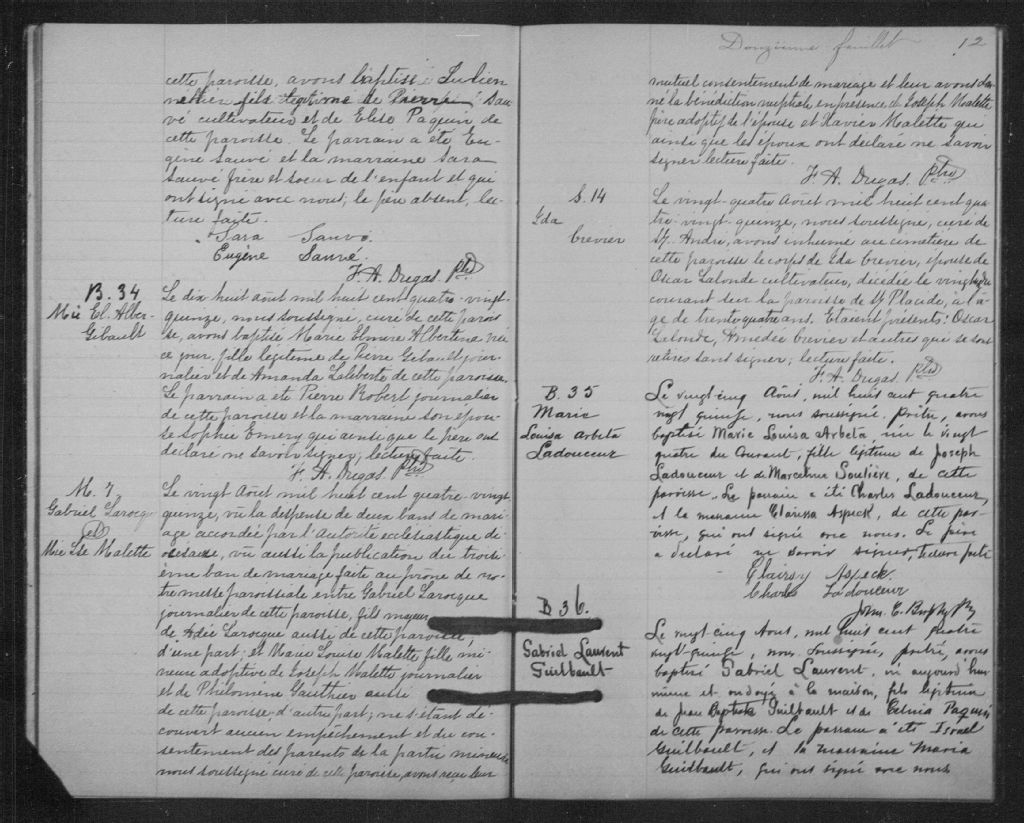 cette paroisse, avons baptisé Julien
fils légitime de Pierre Sau-
vé cultivateur et de Elise Paquin de
cette paroisse. Le parrain a été Eu-
gène Sauvé et la marraine Sara
Sauvé frère et soeur de l'enfant et qui
ont signé avec nous, le père absent, lec-
ture faite.
Sara Sauvé.
Eugène Sauvé.
F. A. Dugas Ptre
B. 34
Mie El. Alber-
Gibault
Le dix huit août mil huit cent quatre-vingt-
quinze, nous soussigné, curé de cette parois
se, avons baptisé Marie Elmire Albertina née
ce jour, fille légitime de Pierre Gibault jour-
nalier et de Amanda Laliberté de cette paroisse.
Le parrain a été Pierre Robert journalier
de cette paroisse et la marraine son épou-
se Sophie Emery qui ainsi que le père ont
déclaré ne savoir signer, lecture faite.
F. A. Dugas Ptre
M. 7
Gabriel Larocque
et
Mie Lse Malette
Le vingt Août mil huit cent quatre-vingt
quinze, vu la dispense de deux bans de mari-
age accordée par l'Autorité ecclésiastique di-
océsaine, vu aussi la publication du troisi-
ème ban de mariage faite au prône de no-
tre messe paroissiale entre Gabriel Larocque
journalier de cette paroisse, fils majeur
de Adée Larocque aussi de cette paroisse,
d'une part; et Marie Louise Malette fille mi-
neure adoptive de Joseph Malette journalier
et de Philomène Gauthier aussi
de cette paroisse, d'autre part; ne s'étant dé-
couvert aucun empêchement et du con-
sentement des parents de la partie mineure
nous soussigné curé de cette paroisse, avons reçu leur
Douzième feuillet 12
mutuel consentement de mariage et leur avons don-
né la bénédiction nuptiale en présence de Joseph Malette
père adoptif de l'épouse et Xavier Malette qui
ainsi que les époux ont déclaré ne savoir
signer lecture faite.
F. A. Dugas Ptre
S. 14
Ida
Crevier
Le vingt-quatre Août mil huit cent qua
tre-vingt-quinze, nous soussigné, curé de
St André, avons inhumé au cimetière de
cette paroisse le corps de Ida Crevier, épouse de
Oscar Lalonde cultivateur, décédée le
courant sur la paroisse de St Placide, à l'â-
ge de trente quatre ans. Etaient présents: Oscar
Lalonde, Amédée Crevier et autres qui se sont
retirés sans signer; lecture faite.
F. A. Dugas Ptre
B. 35
Marie
Louisa Arbeta
Ladouceur
Le vingt-cinq Août, mil huit cent quatre
vingt quinze, nous soussigné, prêtre, avons
baptisé Marie Louisa Arbeta, née le vingt
quatre du courant, fille légitime de Joseph
Ladouceur et de Marcelina Soulière, de cette
paroisse. Le parrain a été Charles Ladouceur,
et la marraine Clarissa Aspeck, de cette par-
oisse, qui ont signé avec nous. Le père
a déclaré ne savoir signer, lecture faite
Clairsy Aspeck.
Charles Ladouceur
John E. Brophy Ptr
B 36.
Gabriel Laurent
Guilbault
Le vingt cinq Aout, mil huit cent quatre
vingt-quinze, nous soussigné, prêtre, avons
baptisé Gabriel Laurent, né aujourd'hui
même et ondoyé à la maison, fils légitime
de Jean Baptiste Guilbault et de Paquin
de cette paroisse. Le parrain a été Israel
Guilbault, et la marraine Maria
Guilbault, qui ont signé avec nous